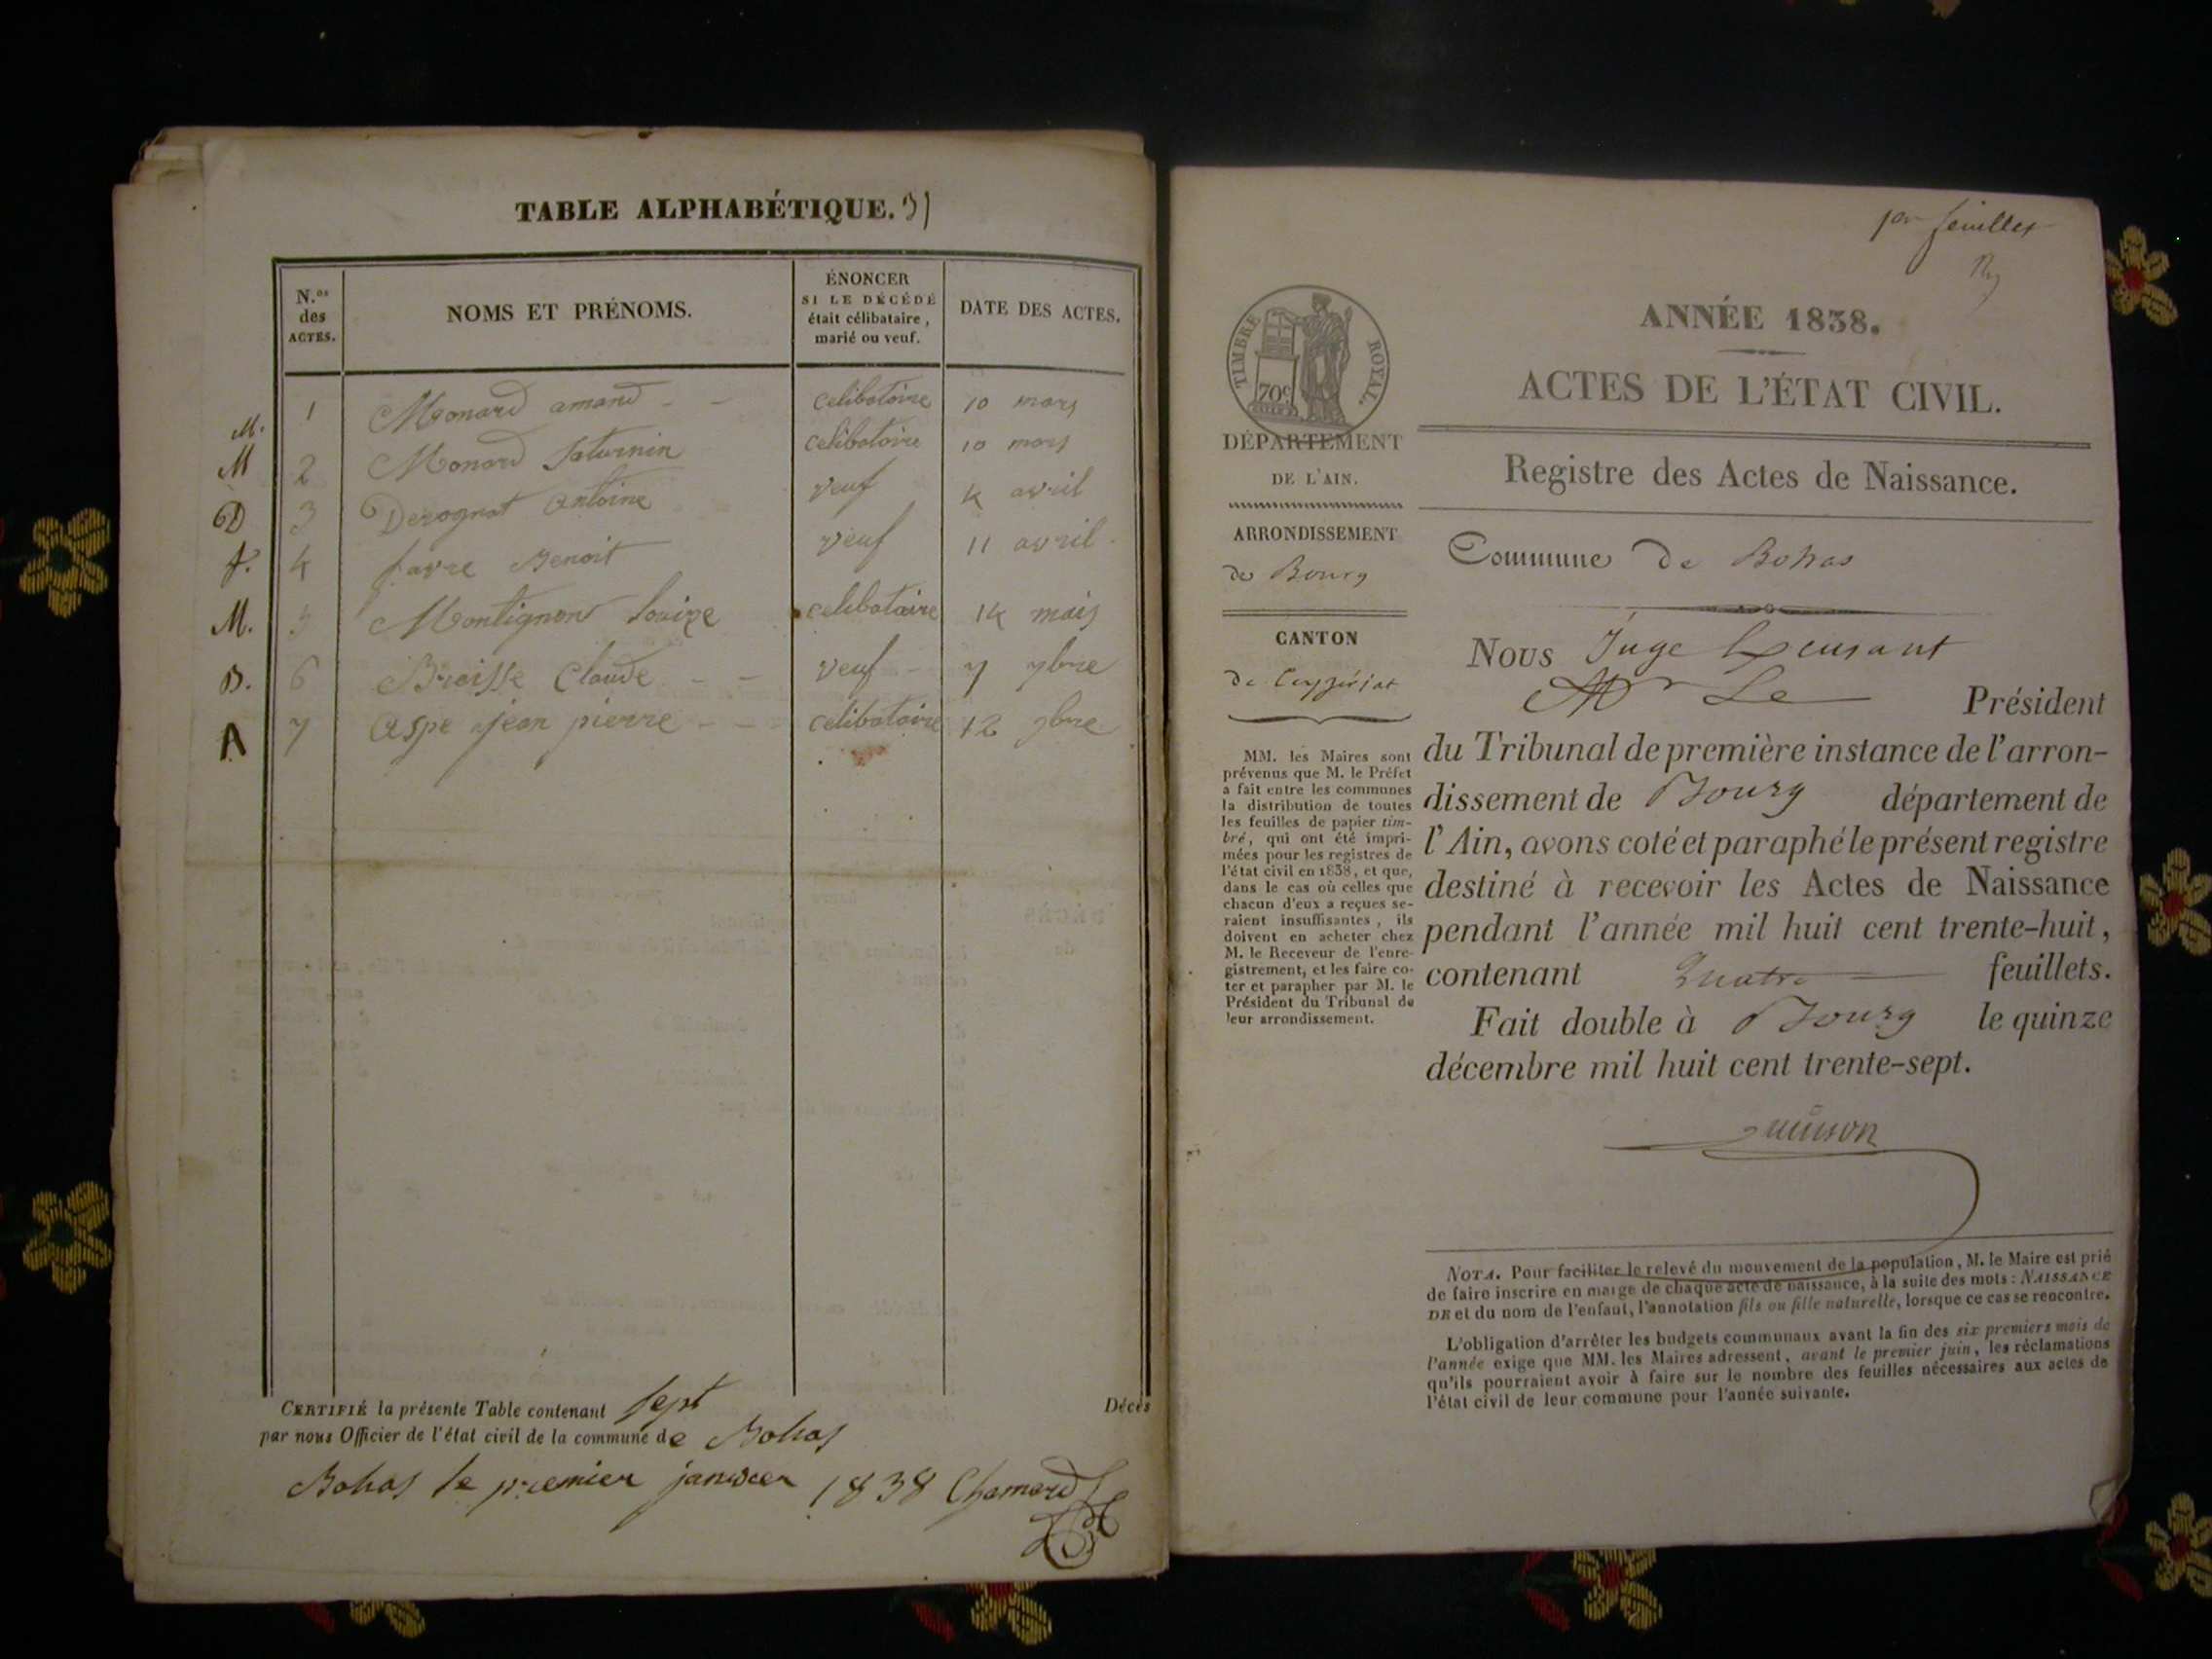 TABLE ALPHABÉTIQUE.
N.os des ACTES.
NOMS ET PRÉNOMS.
ÉNONCER
SI LE DÉCÉDÉ
était célibataire,
marié ou veuf.
DATE DES ACTES.
M. 1 Monard amand - - celibataire 10 mars
M 2 Monard Saturnin celibataire 10 mars
D 3 Derognat Antoine veuf 4 avril
f. 4 favre Benoit veuf 11 avril
M. 5 Montignon Louize celibataire 14 mais
B. 6 Broisse Claude - - veuf - 7 7bre
A 7 Aspe jean pierre - - celibataire 12 9bre
CERTIFIÉ la présente Table contenant sept Décès
par nous Officier de l'état civil de la commune de Bohas
Bohas le premier janvier 1838 Chamard
1er feuillet
TIMBRE ROYAL.
70c
DÉPARTEMENT
DE L'AIN.
ARRONDISSEMENT
de Bourg
CANTON
de Ceyzériat
MM. les Maires sont
prévenus que M. le Préfet
a fait entre les communes
la distribution de toutes
les feuilles de papier tim-
bré, qui ont été impri-
mées pour les registres de
l'état civil en 1838, et que,
dans le cas où celles que
chacun d'eux a reçues se-
raient insuffisantes, ils
doivent en acheter chez
M. le Receveur de l'enre-
gistrement, et les faire co-
ter et parapher par M. le
Président du Tribunal de
leur arrondissement.
ANNÉE 1838.
ACTES DE L'ÉTAT CIVIL.
Registre des Actes de Naissance.
Commune de Bohas
Nous Juge
Mr Le Président
du Tribunal de première instance de l'arron-
dissement de Bourg département de
l'Ain, avons coté et paraphé le présent registre
destiné à recevoir les Actes de Naissance
pendant l'année mil huit cent trente-huit,
contenant quatre feuillets.
Fait double à Bourg le quinze
décembre mil huit cent trente-sept.
NOTA. Pour faciliter le relevé du mouvement de la population, M. le Maire est prié
de faire inscrire en marge de chaque acte de naissance, à la suite des mots: NAISSANCE
DE et du nom de l'enfant, l'annotation fils ou fille naturelle, lorsque ce cas se rencontre.
L'obligation d'arrêter les budgets communaux avant la fin des six premiers mois de
l'année exige que MM. les Maires adressent, avant le premier juin, les réclamations
qu'ils pourraient avoir à faire sur le nombre des feuilles nécessaires aux actes de
l'état civil de leur commune pour l'année suivante.